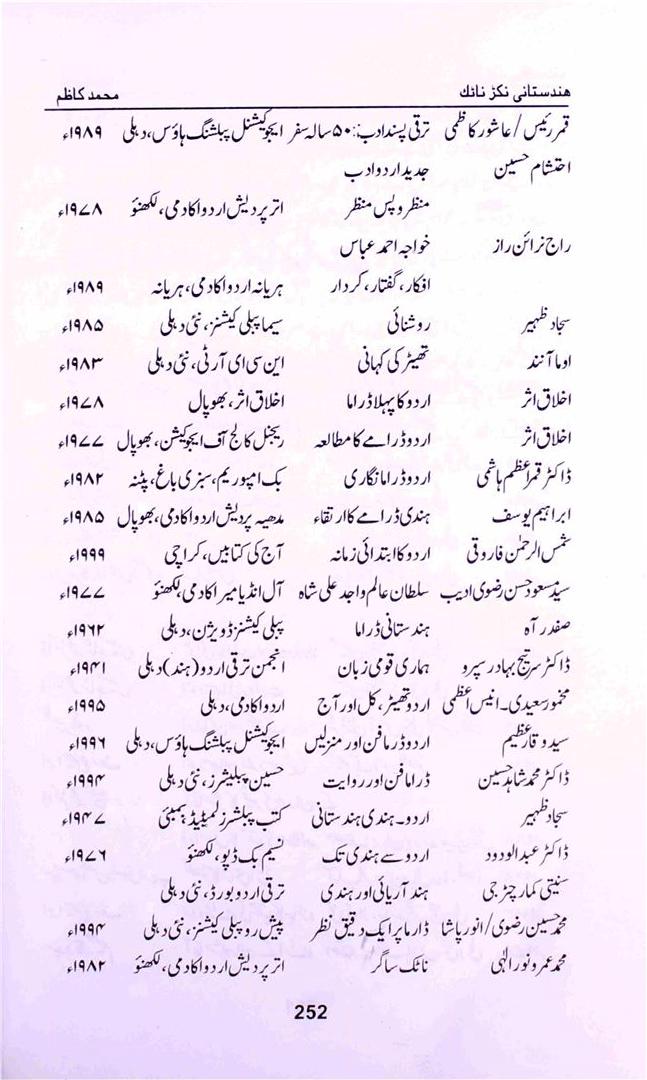 هندستانی نکڑ ناٹک محمد کاظم
قمر رئیس / عاشور کاظمی ترقی پسند ادب: ۵۰ سالہ سفر ایجوکیشنل پبلشنگ ہاؤس، دہلی ۱۹۸۹ء
احتشام حسین جدید اردو ادب
منظر و پس منظر اتر پردیش اردو اکادمی، لکھنؤ ۱۹۷۸ء
راج نرائن راز خواجہ احمد عباس
افکار، گفتار، کردار ہریانہ اردو اکادمی، ہریانہ ۱۹۸۹ء
سجاد ظہیر روشنائی سیما پبلی کیشنز، نئی دہلی ۱۹۸۵ء
اوما آنند تھیٹر کی کہانی این سی ای آر ٹی، نئی دہلی ۱۹۸۳ء
اخلاق اثر اردو کا پہلا ڈراما اخلاق اثر، بھوپال ۱۹۷۸ء
اخلاق اثر اردو ڈرامے کا مطالعہ ریجنل کالج آف ایجوکیشن، بھوپال ۱۹۷۷ء
ڈاکٹر قمر اعظم ہاشمی اردو ڈراما نگاری بک امپوریم، سبزی باغ، پٹنہ ۱۹۸۲ء
ابراہیم یوسف ہندی ڈرامے کا ارتقاء مدھیہ پردیش اردو اکادمی، بھوپال ۱۹۸۵ء
شمس الرحمٰن فاروقی اردو کا ابتدائی زمانہ آج کی کتابیں، کراچی ۱۹۹۹ء
سید مسعود حسن رضوی ادیب سلطان عالم واجد علی شاہ آل انڈیا میر اکادمی، لکھنؤ ۱۹۷۷ء
صفدر آہ ہندستانی ڈراما پبلی کیشنز ڈویژن، دہلی ۱۹۶۲ء
ڈاکٹر سر تیج بہادر سپرو ہماری قومی زبان انجمن ترقی اردو (ہند) دہلی ۱۹۴۱ء
مخمور سعیدی۔ انیس اعظمی اردو تھیٹر، کل اور آج اردو اکادمی، دہلی ۱۹۹۵ء
سید وقار عظیم اردو ڈرما فن اور منزلیں ایجوکیشنل پبلشنگ ہاؤس، دہلی ۱۹۹۶ء
ڈاکٹر محمد شاہد حسین ڈراما فن اور روایت حسین پبلیشرز، نئی دہلی ۱۹۹۴ء
سجاد ظہیر اردو۔ ہندی ہندستانی کتب پبلشرز لمیٹیڈ بمبئی ۱۹۴۷ء
ڈاکٹر عبدالودود اردو سے ہندی تک نسیم بک ڈپو، لکھنؤ ۱۹۷۶ء
سنیتی کمار چٹرجی ہند آریائی اور ہندی ترقی اردو بورڈ، نئی دہلی
محمد حسین رضوی / انور پاشا ڈارما پر ایک دقیق نظر پیش رو پبلی کیشنز، نئی دہلی ۱۹۹۴ء
محمد عمر و نور الٰہی ناٹک ساگر اتر پردیش اردو اکادمی، لکھنؤ ۱۹۸۲ء
252